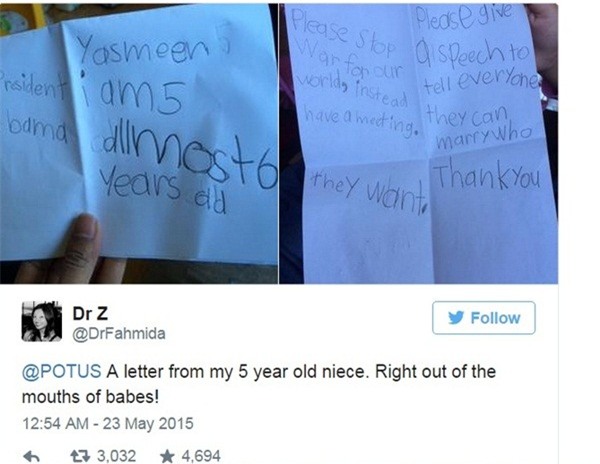 Yasmeen 5
President i am 5
bama allmost 6
years old
Please Stop
War for our
world, instead
have a meeting.
Please give
a speech to
tell everyone
they can
marry who
they want.
Thank you
Dr Z
@DrFahmida
Follow
@POTUS A letter from my 5 year old niece. Right out of the
mouths of babes!
12:54 AM - 23 May 2015
3,032 4,694